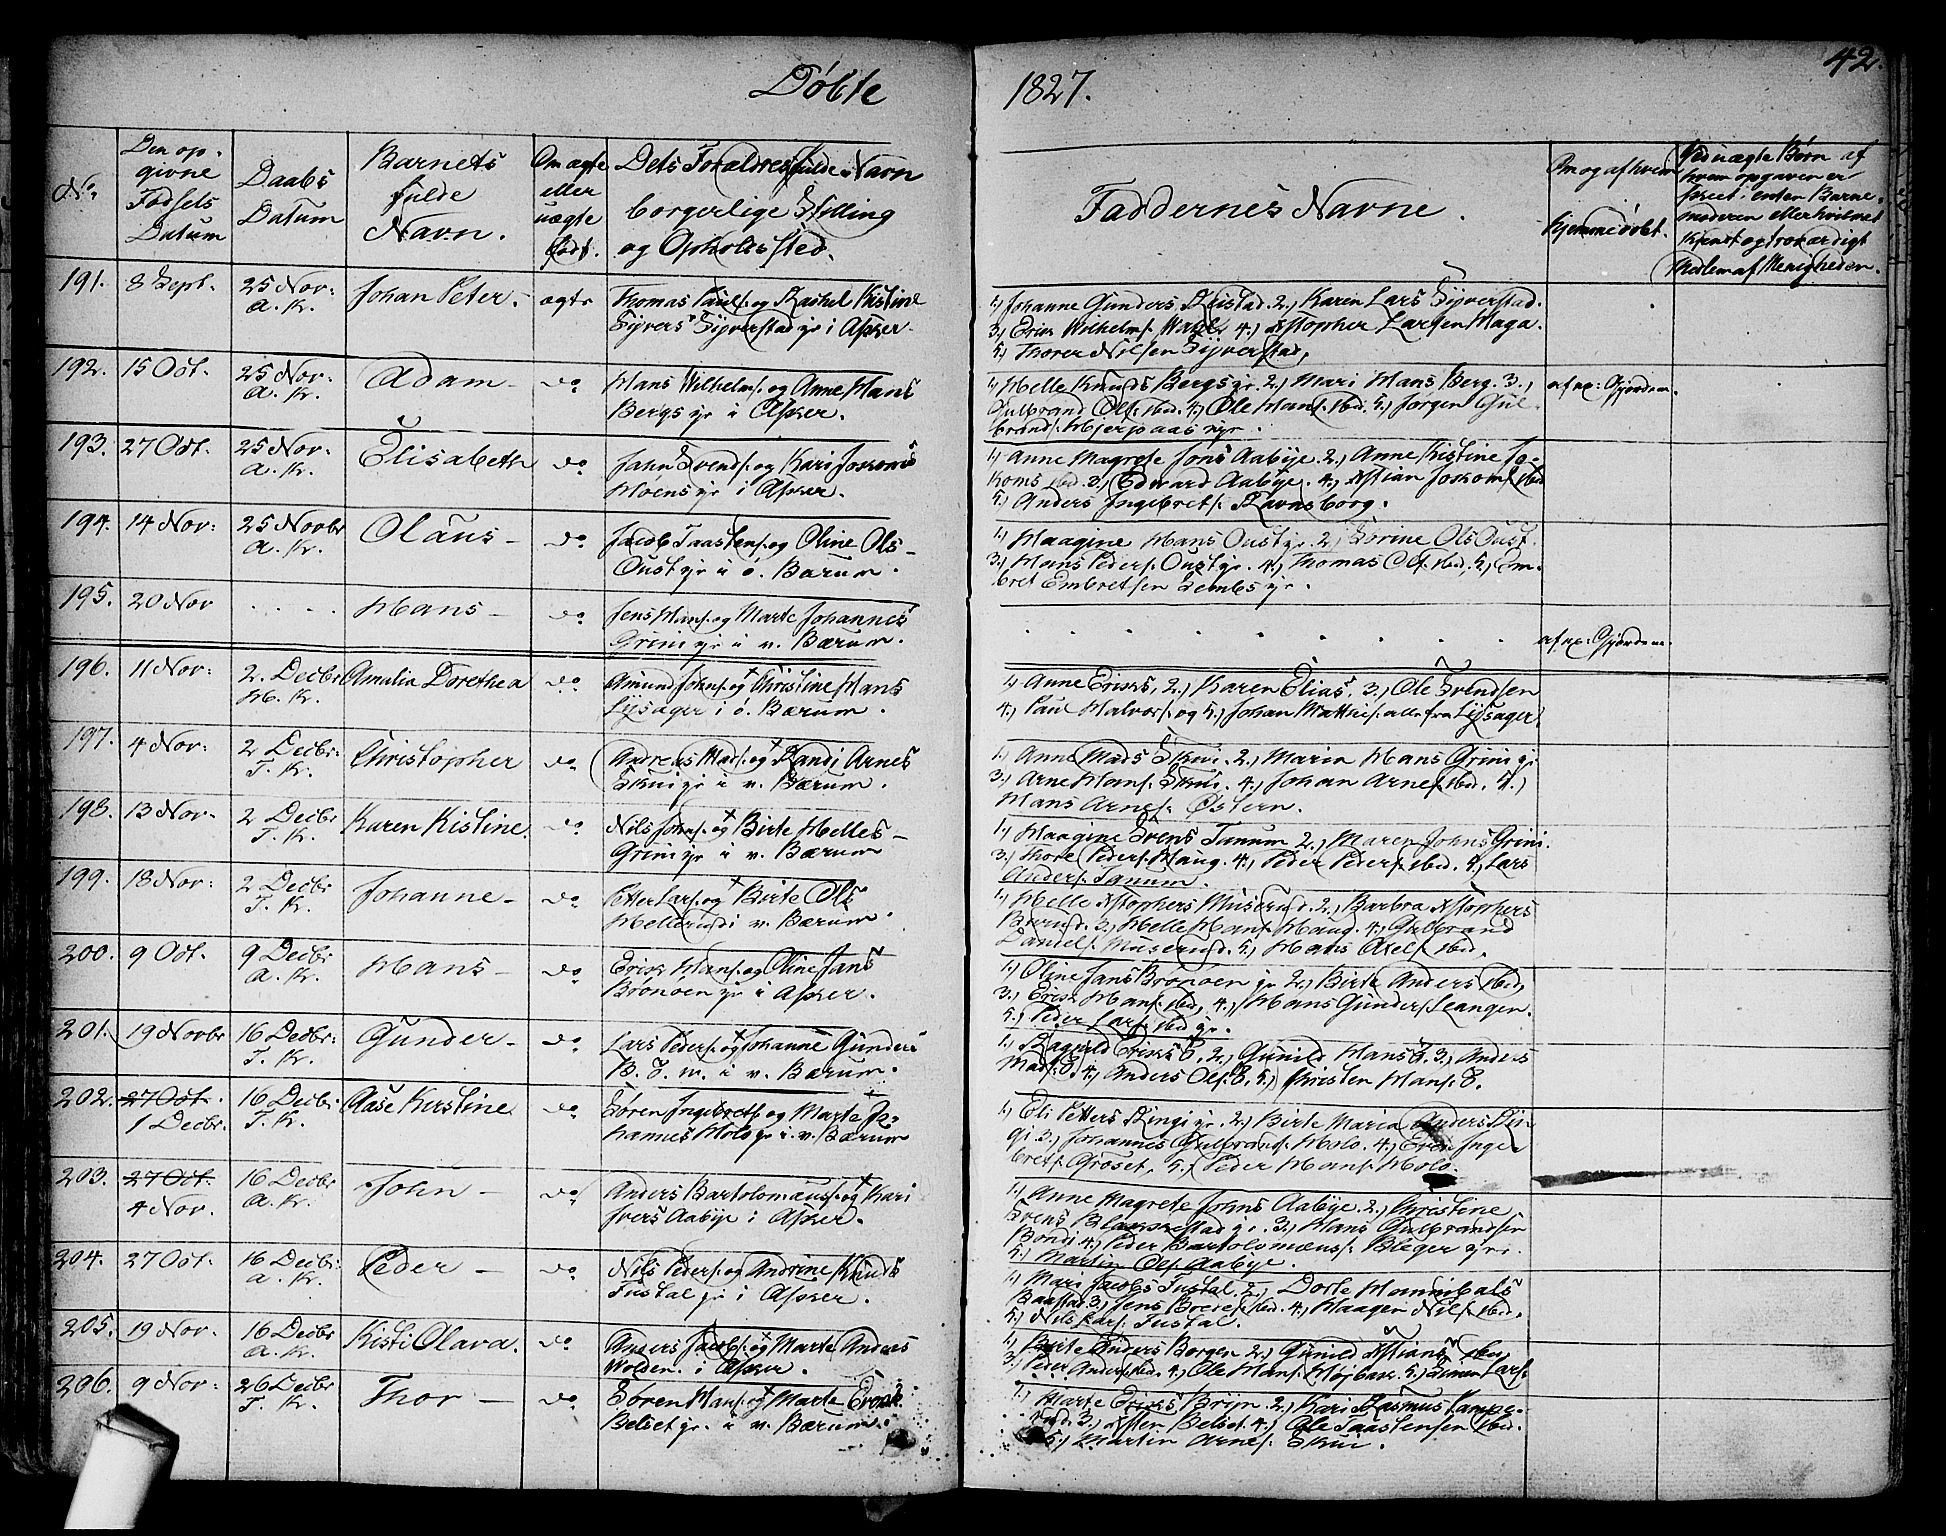 Döbte 1827. 42.
No.
Den op-
givne
Fødsels
Datum
Daabs
Datum
Barnets
fulde
Navn.
Om ægte
eller
uægte
født.
Dets Forældres fulde Navn
borgerlige Stilling
og Opholdssted.
Faddernes Navne.
Om og af hvem
hjemmedöbt.
Ved uægte Børn af
hvem opgaven er
skeet, enten Barne-
moderen eller hvilket
kjendt og troværdigt
Medlem af Menigheden.
191. 8 Sept. 25 Nov: A. K. Johan Peter. ægte
Thomas Pauls: og Rachel Kistine
Syvers Syverstad yr i Asker.
1, Johanne Gunders Reistad. 2, Karen Lars Syverstad.
3, Erik Wilhelms: 4, Xstopher Larsen Haga.
5, Thorer Nilsen Syverstad,
192. 15 Oct. 25 Nov. A. K. Adam do
Hans Wilhelms: og Anne Hans
Bergs yr i Asker.
1, Helle Knuds Bergs yr. 2, Mari Hans Berg. 3,
Gulbrand Ols: ibid. 4, Ole Hans: ibid. 5, Jørgen Gul-
brands: Hjerpaas yr. af ne: Gjordem.
193. 27 Oct. 25 Nov. A. K. Elisabeth do
John Svends: og Kari Jokoms
Høens yr i Asker.
1, Anne Magrete Jons Aabye. 2, Anne Kistine Jo-
koms ibid. 3, Edvard Aabye. 4, Xstian Jokoms: ibid
5, Anders Ingebrets: Ravnsborg.
194. 14 Nov: 25 Novbr A. K. Olaus do
Jacob Taastens: og Oline Ols
Oust yr i ö. Bærum.
1, Haagine Hans Oust yr. 2, Sorine Ols Oust.
3, Hans Peders: Oust yr. 4, Thomas Ols: ibid, 5, Em-
bret Embretsen yr.
195. 20 Nov . . . . Hans do
Jens Hans: og Marte Johannes
Grini yr i v. Bærum.
af ne: Gjordem.
196. 11 Nov: 2. Decbr H. K. Amalia Dorethea do
Amund Johns: og Christine Hans
Lysager i ö. Bærum.
1, Anne Eriks, 2, Karen Elias. 3, Ole Svendsen
4, Paul Halvors: og 5, Johan Mathis: alle fra Lysager
197. 4 Nov: 2 Decbr: T. K. Christopher do
Andreas Mads: og Randi Arnes
Skui yr i v. Bærum.
1, Anne Mads Skui. 2, Maria Hans Grini yr
3, Arne Hans: Skui. 4, Johan Arnes: ibid. 5,
Hans Arnes: Østern.
198. 13 Nov. 2 Decbr T. K. Karen Kistine. do
Nils Johns: og Birte Helles
Grini yr i v. Bærum
1, Haagine Svens Tanum 2, Maren Johns Grini.
3, Thore Peders: Haug. 4, Peder Peders: ibid. 5, Lars
Anders: Tanum.
199. 18 Nov: 2 Decbr T. K. Johanne do
Petter Lars: og Birte Ols
Hellerud i v. Bærum.
1, Helle Xstophers Muserud. 2, Barbra Xstophers
3, Helle Hans: Haug. 4, Gulbrand
Daniels: Muserud. 5, Hans Axels: ibid,
200. 9 Oct. 9 Decbr A. K. Hans do
Erik Hans: og Oline Jans
Brönöen yr i Asker.
1, Oline Jans Brönöen yr 2, Birte Anders ibid,
3, Erik Hans: ibid, 4, Hans Gunders: Slangen.
5, Peder Lars: ibid yr.
201. 19 Novbr 16 Decbr: T. K. Gunder do
Lars Peders: og Johanne Gunders
B. J. w. i v. Bærum.
1, Ragnild Eriks 2, Gunild Hans 3, Anders
Mads: 4, Anders Ols: 5, Christen Hans:
202. 27 Oct. 1 Decbr. 16 Decbr T. K. Aase Kirstine do
Sören Ingebrets: og Marte Jo-
hannes Holo yr i v. Bærum
1, Eli Petters Ringi yr. 2, Birte Maria Anders Rin-
gi 3, Johannes Gulbrands: Holo. 4, Even Inge-
brets: Groset, 5, Peder Hans: Holo.
203. 27 Oct. 4 Nov. 16 Decbr A. K. John do
Anders Bartolomæus: og Kari
Ivers Aabye i Asker.
1, Anne Magrete Johns Aabye. 2, Christine
Svens Blakkestad yr. 3, Hans Gulbrandsen
Bondi 4, Peder Bartolomæus: Bleger yr.
5, Martin Ols: Aabye.
204. 27 Oct. 16 Decbr: A. K. Peder do
Nils Peders: og Andrine Knuds
Fustal yr i Asker.
1, Mari Jacobs Fustal. 2, Dorte Hannibals
Baastad. 3, Jens ibid. 4, Haagen Nils: ibid.
5, Nils Lars: Fustal.
205. 19 Nov. 16 Decbr A. K. Kisti Olava. do
Anders Jacobs: og Marte Anders
Wolden. i Asker.
1, Birte Anders Borgen 2, Gunild Xstians
3, Peder Anders: ibid. 4, Ole Hans: 5, Simen Lars:
206. 9 Nov: 26 Decbr T. K. Thor do
Sören Hans: og Marte
Belset yr. i v. Bærum.
1, Marte Eriks Bryn. 2, Kari Rasmus Kampe-
rud. 3, Belset. 4, Ole Taastensen ibid.
5, Martin Arnes: Skui.